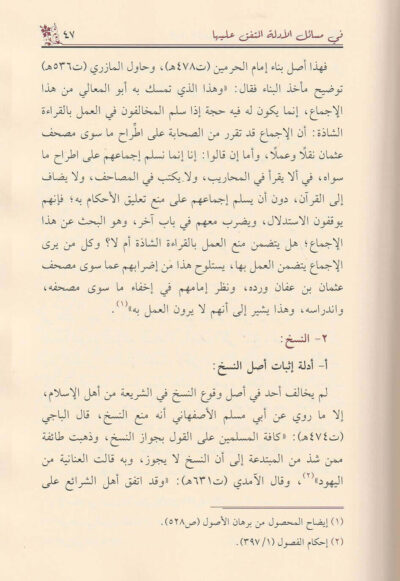 في مسائل الأدلة المتفق عليها
٤٧
فهذا أصل بناء إمام الحرمين (ت٤٧٨هـ)، وحاول المازري (ت٥٣٦هـ)
توضيح مأخذ البناء فقال: «وهذا الذي تمسك به أبو المعالي من هذا
الإجماع، إنما يكون له فيه حجة إذا سلم المخالفون في العمل بالقراءة
الشاذة: أن الإجماع قد تقرر من الصحابة على اطِّراح ما سوى مصحف
عثمان نقلًا وعملًا، وأما إن قالوا: إنا إنما نسلم إجماعهم على اطراح ما
سواه، في ألا يقرأ في المحاريب، ولا يكتب في المصاحف، ولا يضاف
إلى القرآن، دون أن يسلم إجماعهم على منع تعليق الأحكام به؛ فإنهم
يوقفون الاستدلال، ويضرب معهم في باب آخر، وهو البحث عن هذا
الإجماع؛ هل يتضمن منع العمل بالقراءة الشاذة أم لا؟ وكل من يرى
الإجماع يتضمن العمل بها، يستلوح هذا من إضرابهم عما سوى مصحف
عثمان بن عفان ورده، ونظر إمامهم في إخفاء ما سوى مصحفه،
واندراسه، وهذا يشير إلى أنهم لا يرون العمل به»(١).
٢- النسخ:
أ- أدلة إثبات أصل النسخ:
لم يخالف أحد في أصل وقوع النسخ في الشريعة من أهل الإسلام،
إلا ما روي عن أبي مسلم الأصفهاني أنه منع النسخ، قال الباجي
(ت٤٧٤هـ): «كافة المسلمين على القول بجواز النسخ، وذهبت طائفة
ممن شذ من المبتدعة إلى أن النسخ لا يجوز، وبه قالت العنانية من
اليهود»(٢)، وقال الآمدي (ت٦٣١هـ): «وقد اتفق أهل الشرائع على
(١) إيضاح المحصول من برهان الأصول (ص٥٢٨).
(٢) إحكام الفصول (٣٩٧/١).